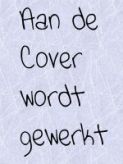 Aan de
Cover
wordt
gewerkt